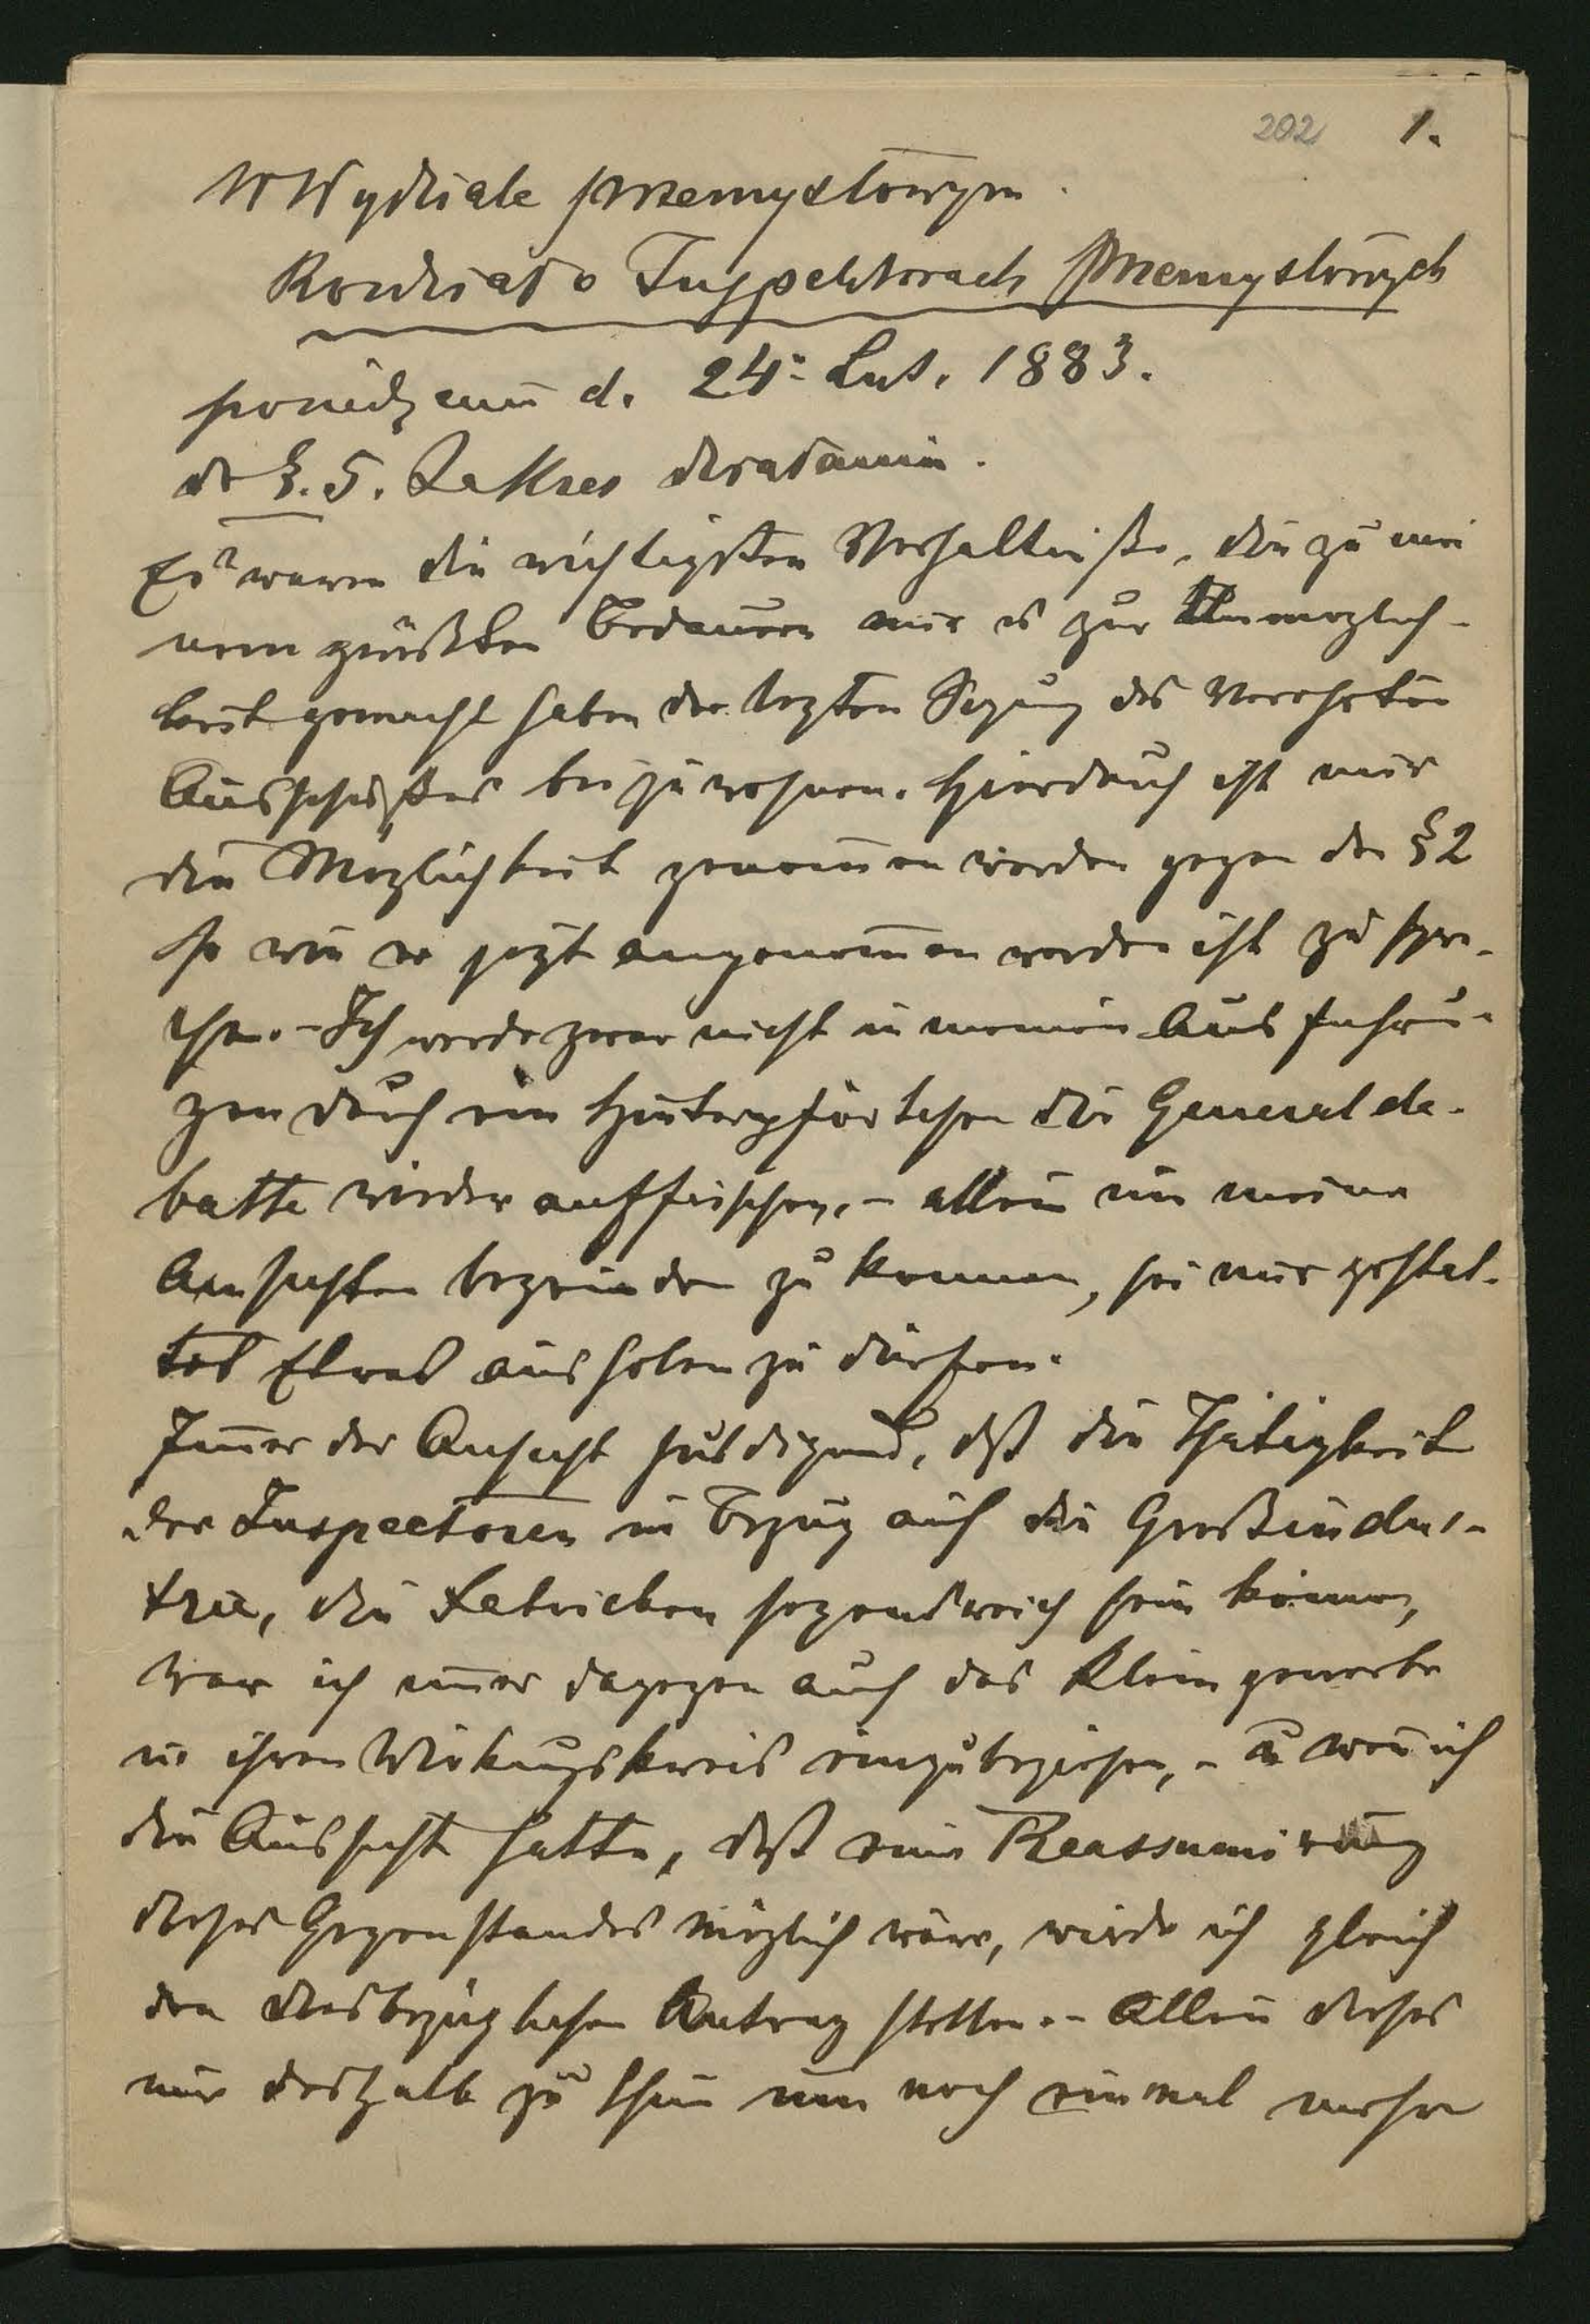 202 1.
W Wydziale przemysłowym.
Rozdział o Inspektorach Przemysłowych
posiedzeniu d. 24. Lut. 1883.
do §. 5. Zakres działania.
Es waren die wichtigsten Verhältniße, die zu mei
nem größten Bedauern mir es zur Unmöglich-
keit gemacht haben der lezten Sizung des Verehrten
Ausschußes beizuwohnen. Hierdurch ist mir
die Möglichkeit genom̄en worden gegen den § 2
so wie er jezt angenom̄en worden ist zu spre-
chen. – Ich werde zwar nicht in meinen Ausführun-
gen durch ein Hinterpförtchen die Generalde-
batte wieder auffrischen, – allein um meine
Ansichten begründen zu können, sei mir gestat-
tet Etwas ausholen zu dürfen.
Im̄er der Ansicht huldigend, daß die Thätigkeit
der Inspectoren in Bezug auf die Großindus-
trie, die Fabriken segensreich sein könne,
war ich im̄er dagegen auch das Kleingewerbe
in ihren Wirkungskreis einzubeziehen, – u wen̄ ich
die Aussicht hätte, daß eine Reassumirung
dieses Gegenstandes möglich wäre, würde ich gleich
den diesbezüglichen Antrag stellen. – Allein dieses
nur deshalb zu thun um noch einmal meine